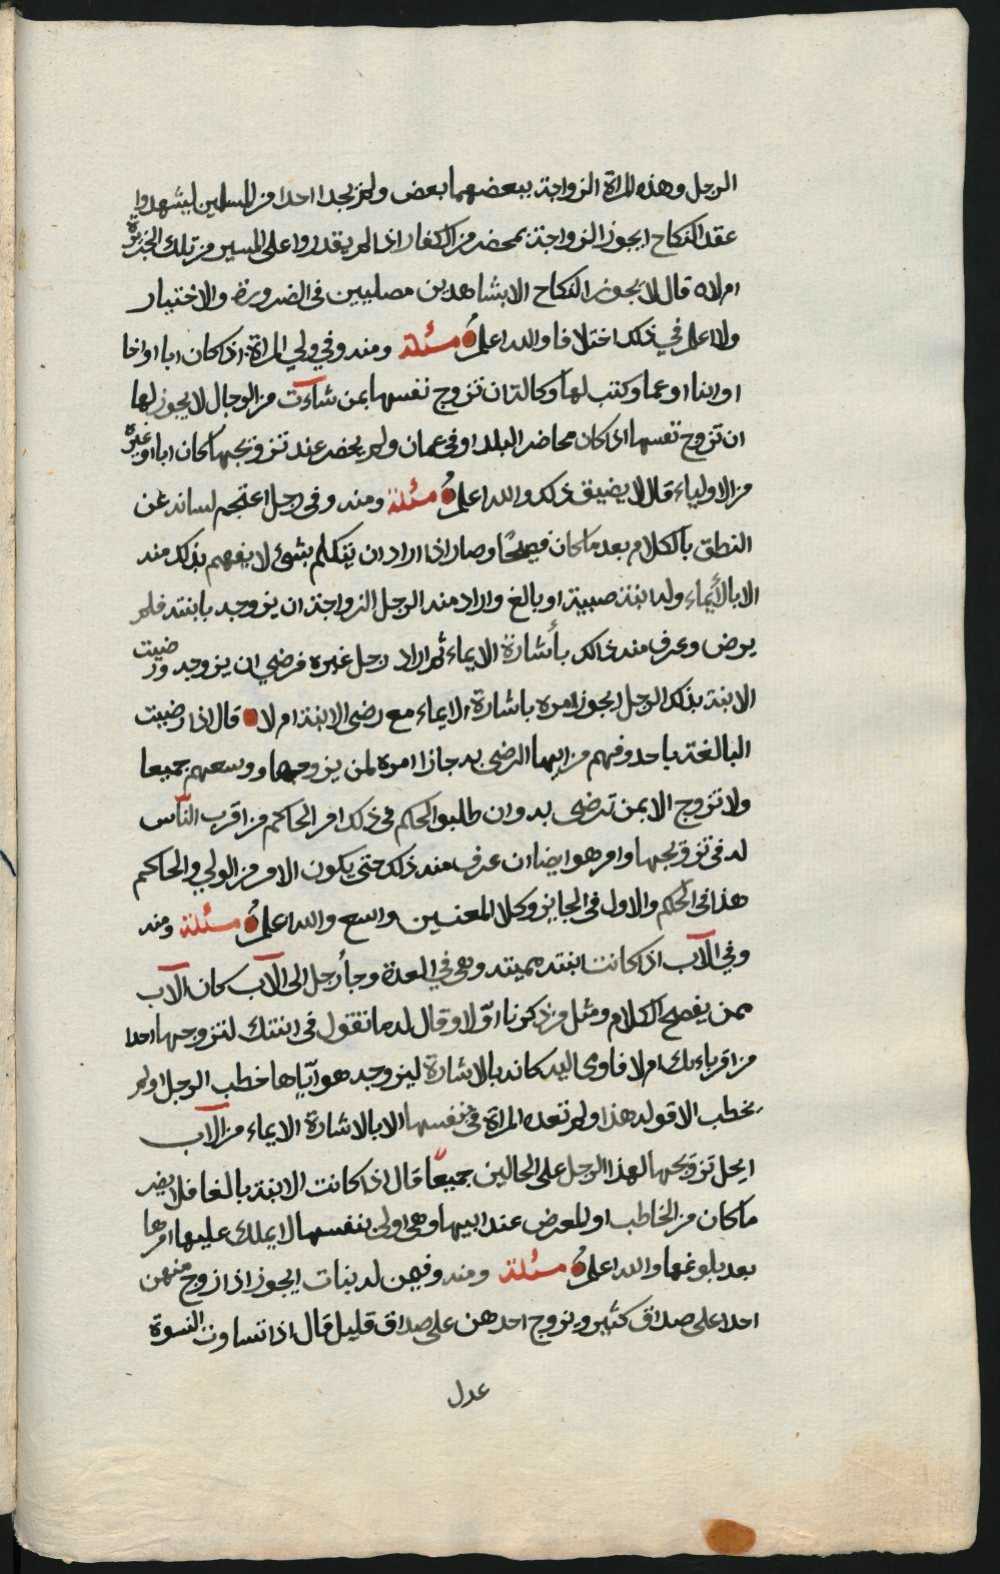 الرجل وهذه المراة الزواجة ببعضهما بعض ولم يجدا احدا من المسلمين ليشهدوا
عقد النكاح ايجوز الزواجة بمحضر من الكفار اذا لم يقدروا على المسير من تلك الجزيرة
ام لاه قال لا يجوز النكاح الا بشاهدين مصليين في الضرورة والاختيار
ولا اعلم في ذلك اختلافا والله اعلم مسئلة ومنه وفي ولي المراة اذا كان ابا او اخا
او ابنا او عما وكتب لها وكالة ان تزوج نفسها بمن شاءت من الرجال لا يجوز لها
ان تزوج نفسها اذا كان محاضر البلد او في عمان ولم يحضر عند تزويجها كان ابا او غيره
من الاولياء قال لا يضيق ذلك والله اعلم مسئلة ومنه وفي رجل اعتجم لسانه عن
النطق بالكلام بعد ما كان فصيحا وصار اذا اراد ان يتكلم بشئ لا يفهم بذلك منه
الا بالأيماء وله ابنة صبية او بالغ واراد منه الرجل الزواجة ان يزوجه بابنته فلم
يرض وعرف منه ذلك بأشارة الايماء ثم اراد رجل غيره فرضي ان يزوجه ورضيت
الابنة بذلك الرجل ايجوز امره باشارة الايماء مع رضى الابنة ام لا قال اذا رضيت
البالغة باحد وفهم من ابيها الرضى به جاز امره لمن يزوجها ووسعهم جميعا
ولا تزوج الا بمن ترضى به وان طلبوا الحكم في ذلك امر الحاكم من اقرب الناس
له في تزويجها وامر هو ايضا ان عرف منه ذلك حتى يكون الامر من الولي والحاكم
هذا في الحكم والاول في الجايز وكلا المعنيين واسع والله اعلم مسئلة ومنه
وفي الآب اذا كانت ابنته مميتة وهي في العدة وجأ رجل الى الآب كان الآب
ممن يفصح الكلام ومثل من ذكرنا اوّلا وقال له ما تقول في ابنتك لتزوجها احدا
من اقرباءك ام لا فاوى اليه كانه بالاشارة ليزوجه هو ايّاها خطب الرجل او لم
يخطب الا قوله هذا ولم تعده المراة في نفسها الا بالاشارة الايماء من الآب
ايحل تزويجها لهذا الرجل على الحالين جميعًا قال اذا كانت الابنة بالغا فلا يضر
ما كان من الخاطب او المعرض عند ابيها وهي اولى بنفسها لا يملك عليها امرها
بعد بلوغها والله اعلم مسئلة ومنه وفيمن له بنات ايجوز اذا زوج منهن
احدا على صداق كثير وتزوج احدهن على صداق قليل قال اذا تساوت النسوة
عدل